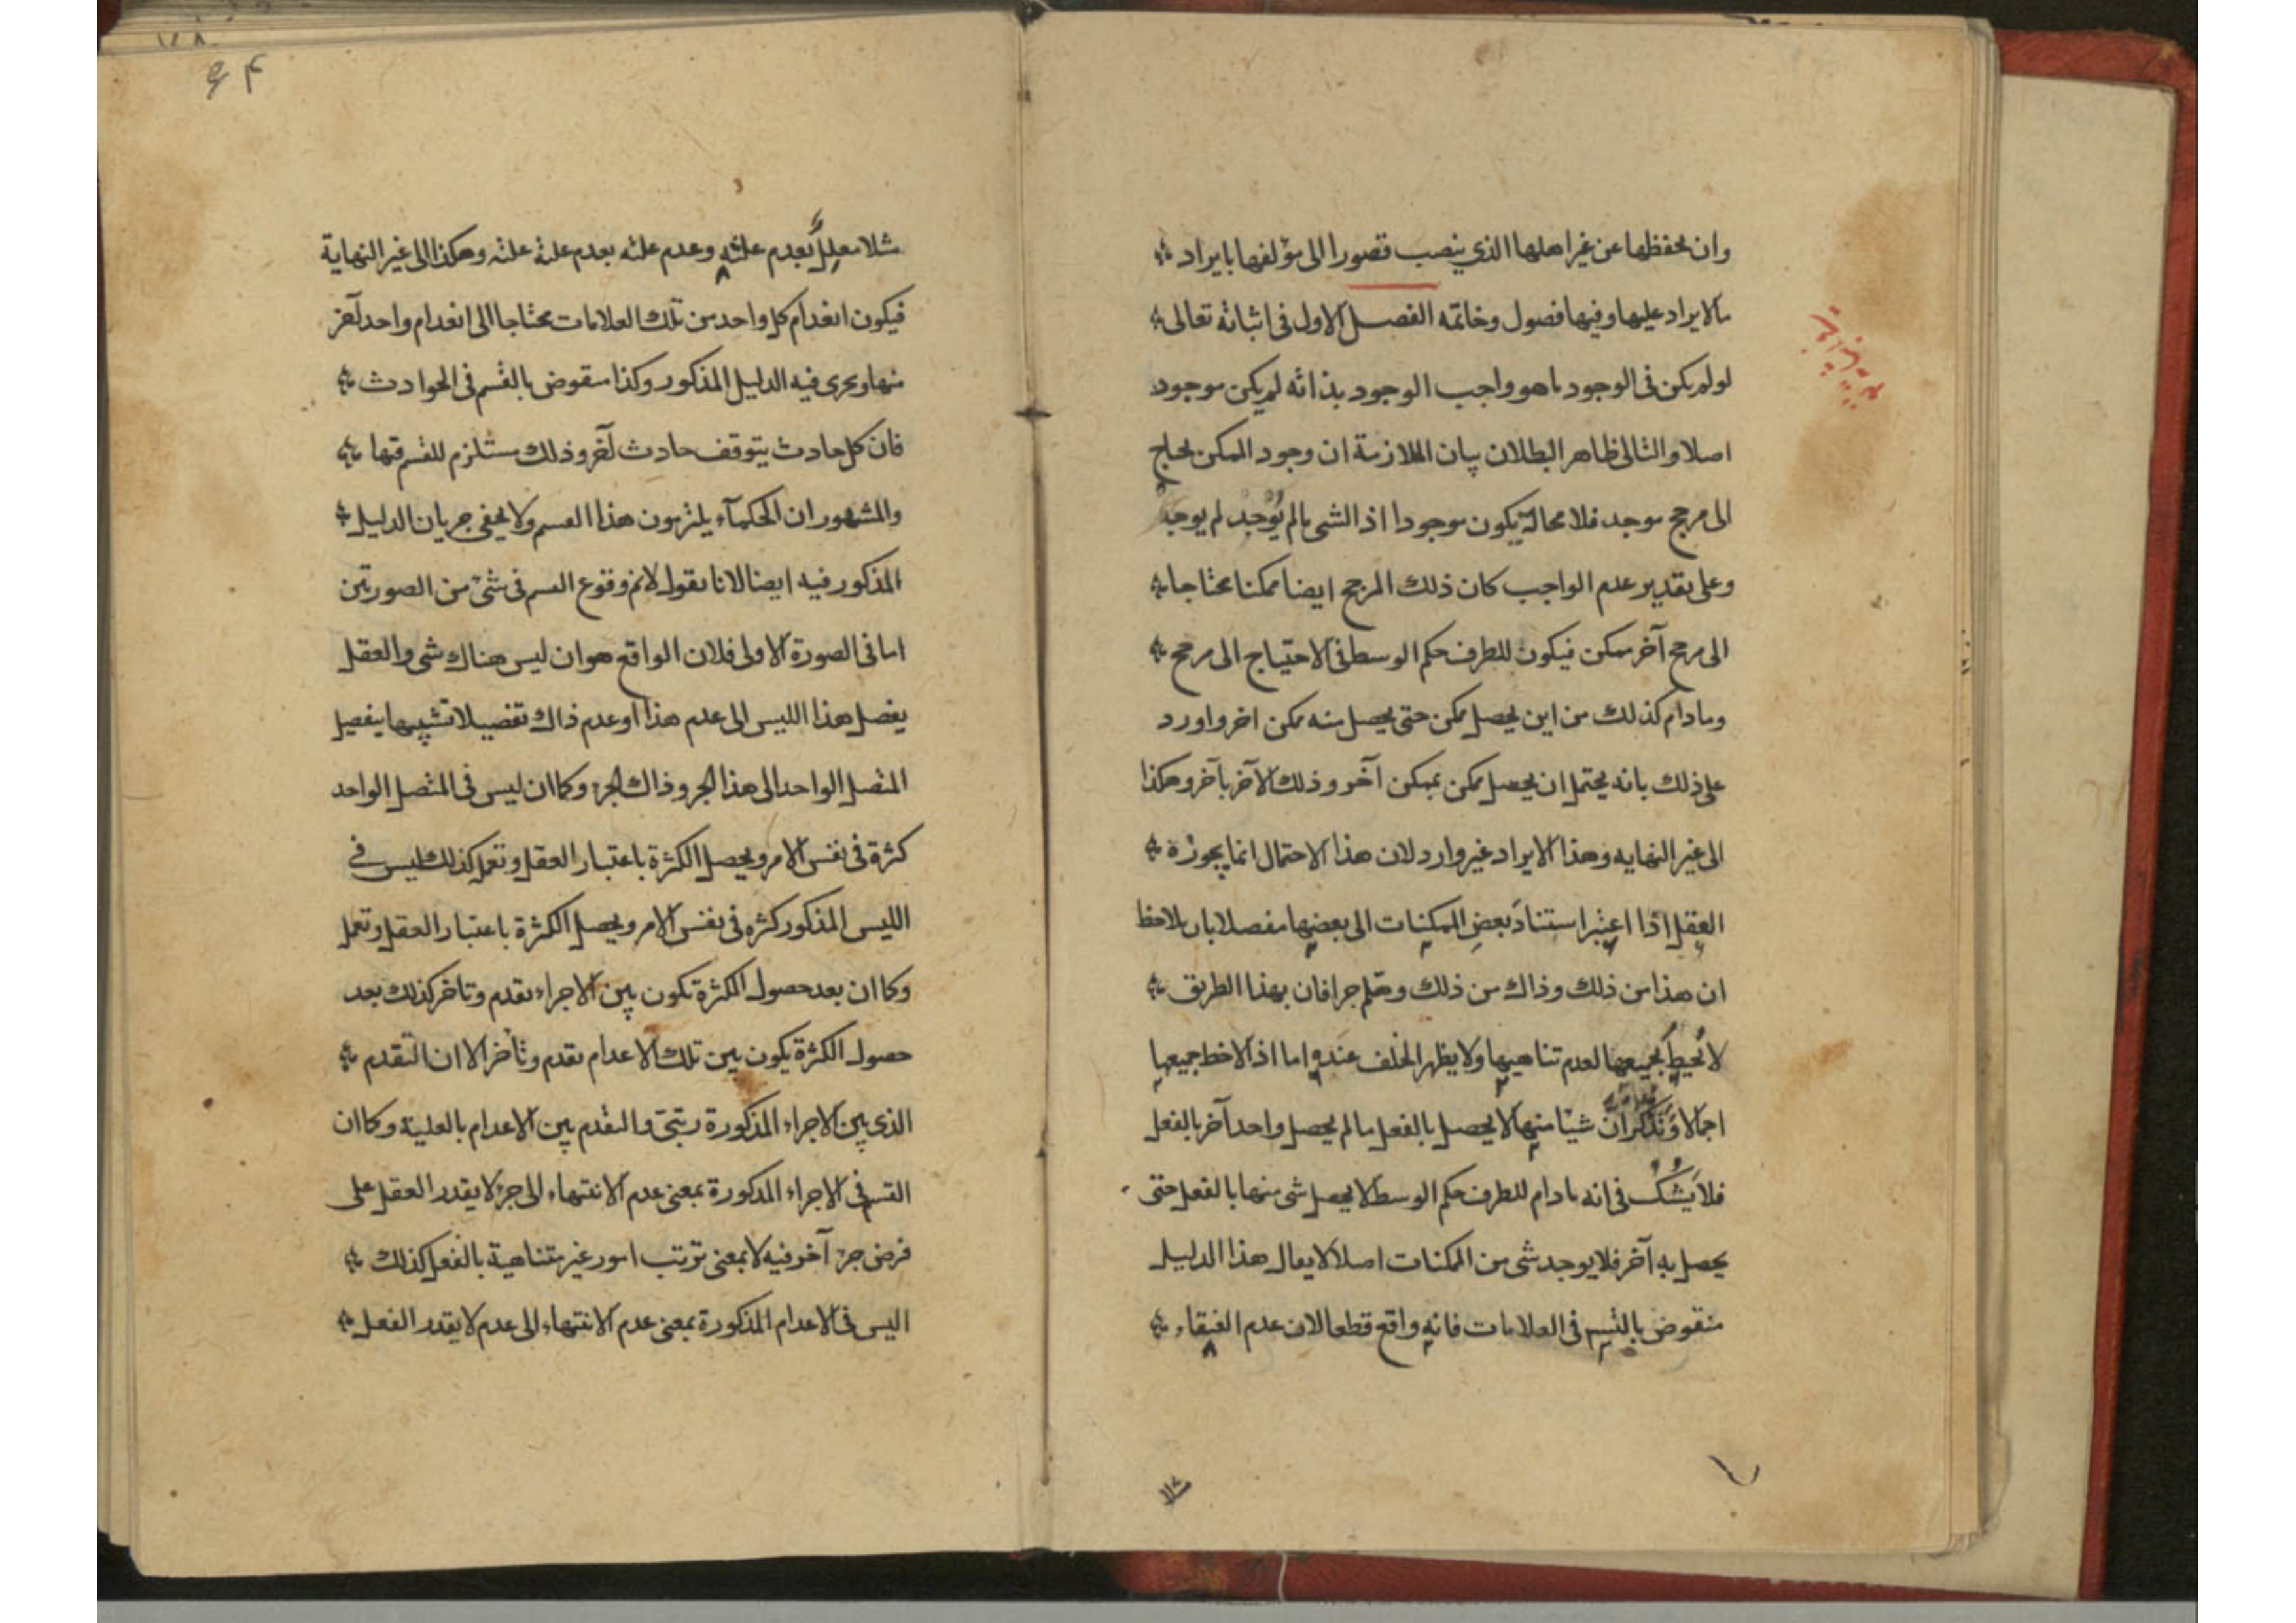 وان يحفظها عن غير اهلها الذي ينصب قصورا الى مؤلفها بايراد
مالا يراد عليها وفيها فصول وخاتمه الفصل الاول في اثباته تعالى
لو لم يكن في الوجود ما هو واجب الوجود بذاته لم يكن موجود
اصلا والتالى ظاهر البطلان بيان الملازمة ان وجود الممكن يحتاج
الى مرجح موجد فلا محالة يكون موجودا اذ الشى مالم يُوْجَدْ لم يوجد
وعلى تقدير عدم الواجب كان ذلك المرجح ايضا ممكنا محتاجا
الى مرجح آخر ممكن فيكون للطرف حكم الوسط في الاحتياج الى مرجح
وما دام كذلك من اين يحصل ممكن حتى يحصل منه ممكن اخر واورد
على ذلك بانه يحتمل ان يحصل ممكن بممكن آخر وذلك الآخر بآخر وهكذا
الى غير النهايه وهذا الايراد غير وارد لان هذا الاحتمال انما يجوزه
العقل اذا اعتبر استناد بعض الممكنات الى بعضها مفصلا بان يلاحظ
ان هذا من ذلك وذاك من ذلك وهلم جرا فان بهذا الطريق
لا تحيط بجميعها لعدم تناهيها ولا يظهر الخلف عنده اما اذا لاحظ جميعها
اجمالا وَتَذَكَّرَ ان شيئا منها لا يحصل بالفعل مالم يحصل واحد آخر بالفعل
فلا يَشُكُّ في انه مادام للطرف حكم الوسط لا يحصل شى منها بالفعل حتى
يحصل به آخر فلا يوجد شى من الممكنات اصلا لا يقال هذا الدليل
منقوض بالتس في العلامات فانه واقع قطعا لان عدم العنقاء
مثلا معلل بعدم علته وعدم علته بعدم علة علته وهكذا الى غير النهاية
فيكون انعدام كل واحد من تلك العلامات محتاجا الى انعدام واحد آخر
منها ويجرى فيه الدليل المذكور وكذا منقوض بالتس في الحوادث
فان كل حادث يتوقف حادث آخر وذلك مستلزم للتس فيها
والمشهور ان الحكمآء يلتزمون هذا القسم ولا يخفى جريان الدليل
المذكور فيه ايضا لانا نقول لانم وقوع التس في شئ من الصورتين
اما في الصورة الاولى فلان الواقع هو ان ليس هناك شى والعقل
يفصل هذا الليس الى عدم هذا او عدم ذاك تفصيلا تشبيها بتفصيل
المتصل الواحد الى هذا الجزء وذاك الجزء وكما ان ليس في المتصل الواحد
كثرة في نفس الامر ويحصل الكثرة باعتبار العقل وتعمل كذلك ليس في
الليس المذكور كثره في نفس الامر ويحصل الكثرة باعتبار العقل وتعمل
وكما ان بعد حصول الكثرة تكون بين الاجزاء تقدم وتاخر كذلك بعد
حصول الكثرة يكون بين تلك الاعدام تقدم وتأخر الا ان التقدم
الذى بين الاجزاء المذكورة رتبتى والتقدم بين الاعدام بالعلية وكما ان
التس في الاجزاء المذكورة بمعنى عدم الانتهاء الى جزء لا يقدر العقل على
فرض جزء آخر فيه لا بمعنى ترتب امور غير متناهية بالفعل كذلك
اليس في الاعدام المذكورة بمعنى عدم الانتهاء الى عدم لا يقدر الفعل